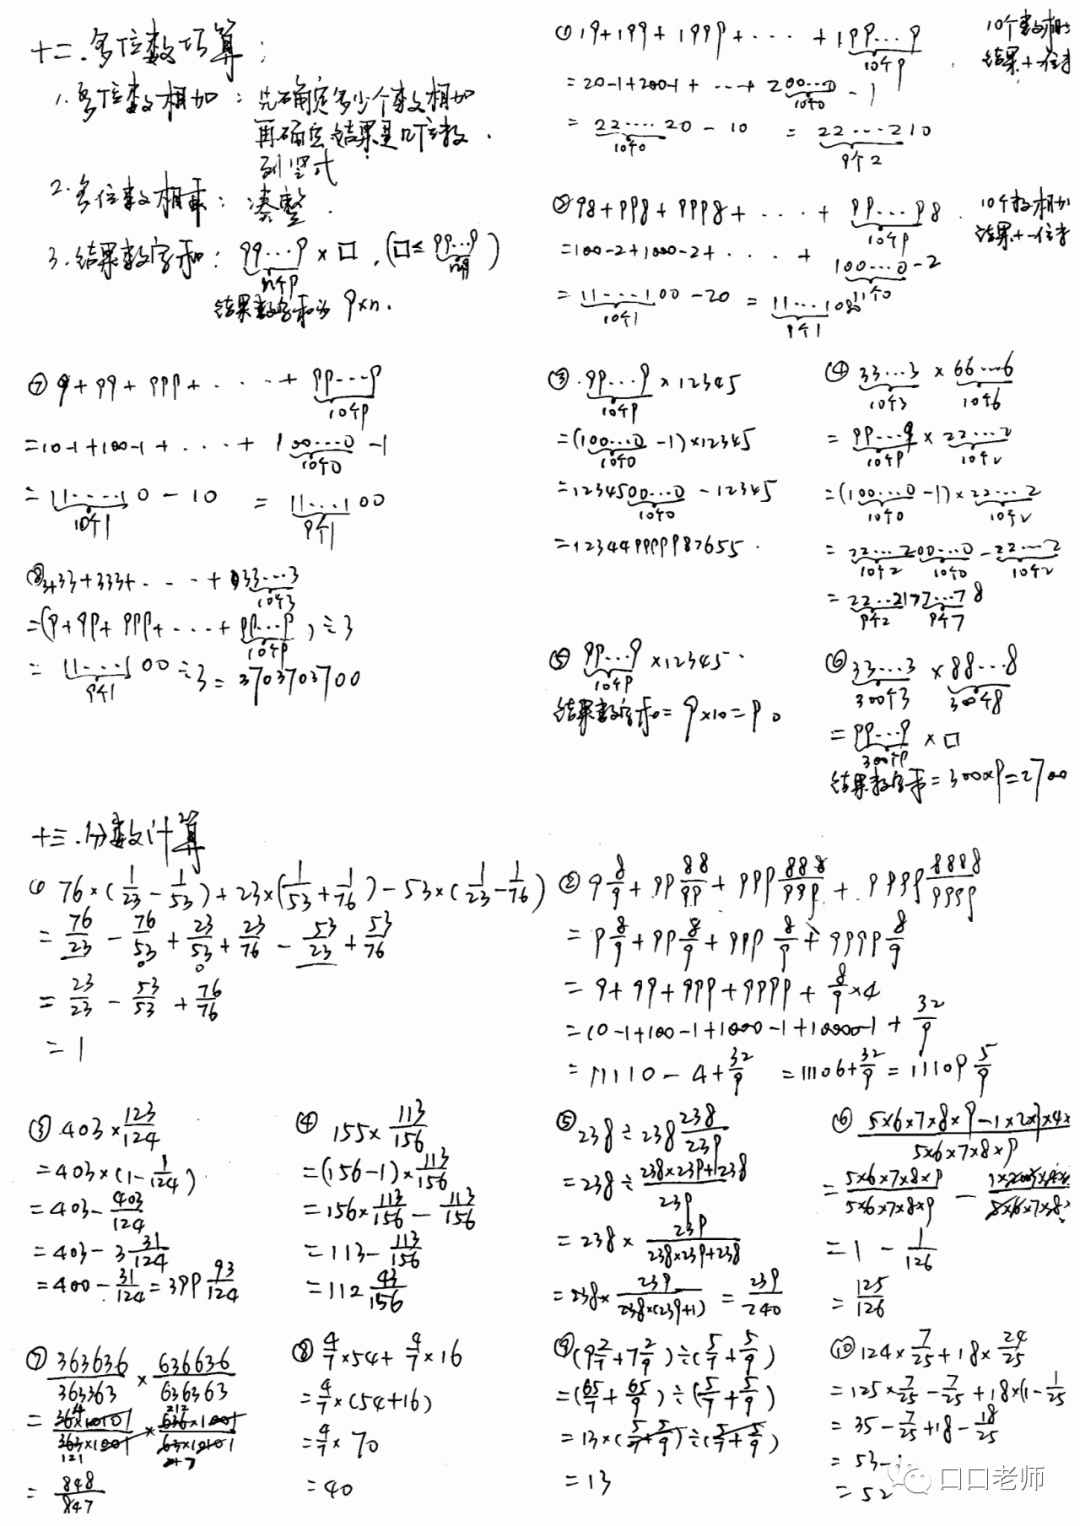 十二.多位数巧算:
1.多位数相加: 先确定多少个数相加
再确定结果是几位数.
列竖式
2.多位数相乘: 凑整.
3.结果数字和: 99…9 × □ . (□≤ 99…9)
n个9 n个9
结果数字和为 9×n.
① 19+199+1999+····+199…9
10个9
10个数相加
=20-1+200-1+···+200…0 - 1
10个0
= 22····20 - 10 = 22…210
9个2
② 98+998+9998+····+ 99…98
10个9
10个数相加
=100-2+1000-2+····+ 100…0-2
11个0
= 11…100-20 = 11…1080
10个1 9个1
⑦ 9+99+999+····+ 99…9
10个9
=10-1+100-1+····+ 100…0 -1
10个0
= 11…10 - 10 = 11…100
10个1 9个1
⑧ 3+33+333+···+ 333…3
10个3
=(9+99+999+···+99…9)÷3
10个9
= 11…100÷3 = 3703703700
9个1
③ 99…9 ×12345
10个9
=(100…0 -1)×12345
10个0
=1234500…0 - 12345
10个0
=123449999987655.
④ 33…3 × 66…6
10个3 10个6
= 99…9 × 22…2
10个9 10个2
=(100…0 -1)×22…2
10个0 10个2
= 22…200…0 - 22…2
10个2 10个0 10个2
= 22…2177…78
9个2 9个7
⑤ 99…9 ×12345.
10个9
结果数字和= 9×10=90
⑥ 33…3 × 88…8
300个3 300个8
= 99…9 × □
300个9
结果数字和=300×9=2700
十三.分数计算
① 76×(1/23 - 1/53)+23×(1/53+1/76)-53×(1/23-1/76)
= 76/23 - 76/53 + 23/53 + 23/76 - 53/23 + 53/76
= 23/23 - 53/53 + 76/76
= 1
② 9 8/9 + 99 88/99 + 999 888/999 + 9999 8888/9999
= 9 8/9 + 99 8/9 + 999 8/9 + 9999 8/9
= 9+99+999+9999+ 8/9×4
=10-1+100-1+1000-1+10000-1+ 32/9
= 11110-4+32/9 = 11106+32/9 = 11109 5/9
③ 403× 123/124
=403×(1-1/124)
=403- 403/124
=403-3 31/124
=400- 31/124 = 399 93/124
④ 155× 113/156
=(156-1)× 113/156
=156× 113/156 - 113/156
=113- 113/156
=112 43/156
⑤ 238÷238 238/239
=238÷ 238×239+238/239
=238× 239/238×239+238
=238× 239/238×(239+1) = 239/240
⑥ 5×6×7×8×9-1×2×3×4×/5×6×7×8×9
= 5×6×7×8×9/5×6×7×8×9 -
=1 - 1/126
= 125/126
⑦ 363636/363363 × 636636/636363
= 36×10101/363×1001 × 636×1001/63×10101
4 212
121 7
= 848/847
⑧ 4/7×54+ 4/7×16
= 4/7×(54+16)
= 4/7×70
=40
⑨ (9 2/7+7 2/9)÷(5/7+5/9)
=(65/7+65/9)÷(5/7+5/9)
=13×(5/7+5/9)÷(5/7+5/9)
=13
⑩ 124× 7/25+18× 24/25
=125× 7/25 - 7/25 +18×(1-1/25
=35- 7/25 +18- 18/25
=53-
=52
口口老师